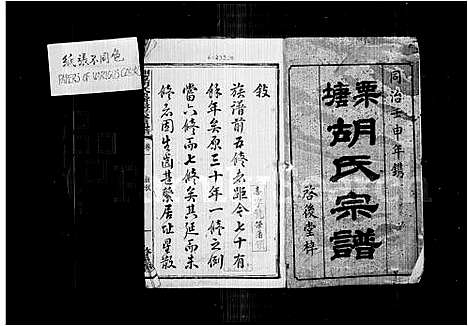 紙張不同色
PAPERS OF VARIOUS COLOR
同治壬申年鐫
栗塘胡氏宗譜
啓後堂梓
敘
族譜前五修迄距今七十有
餘年矣原三十年一修之例
當六修而七修矣其延而未
修者固生齒甚繁居址星散